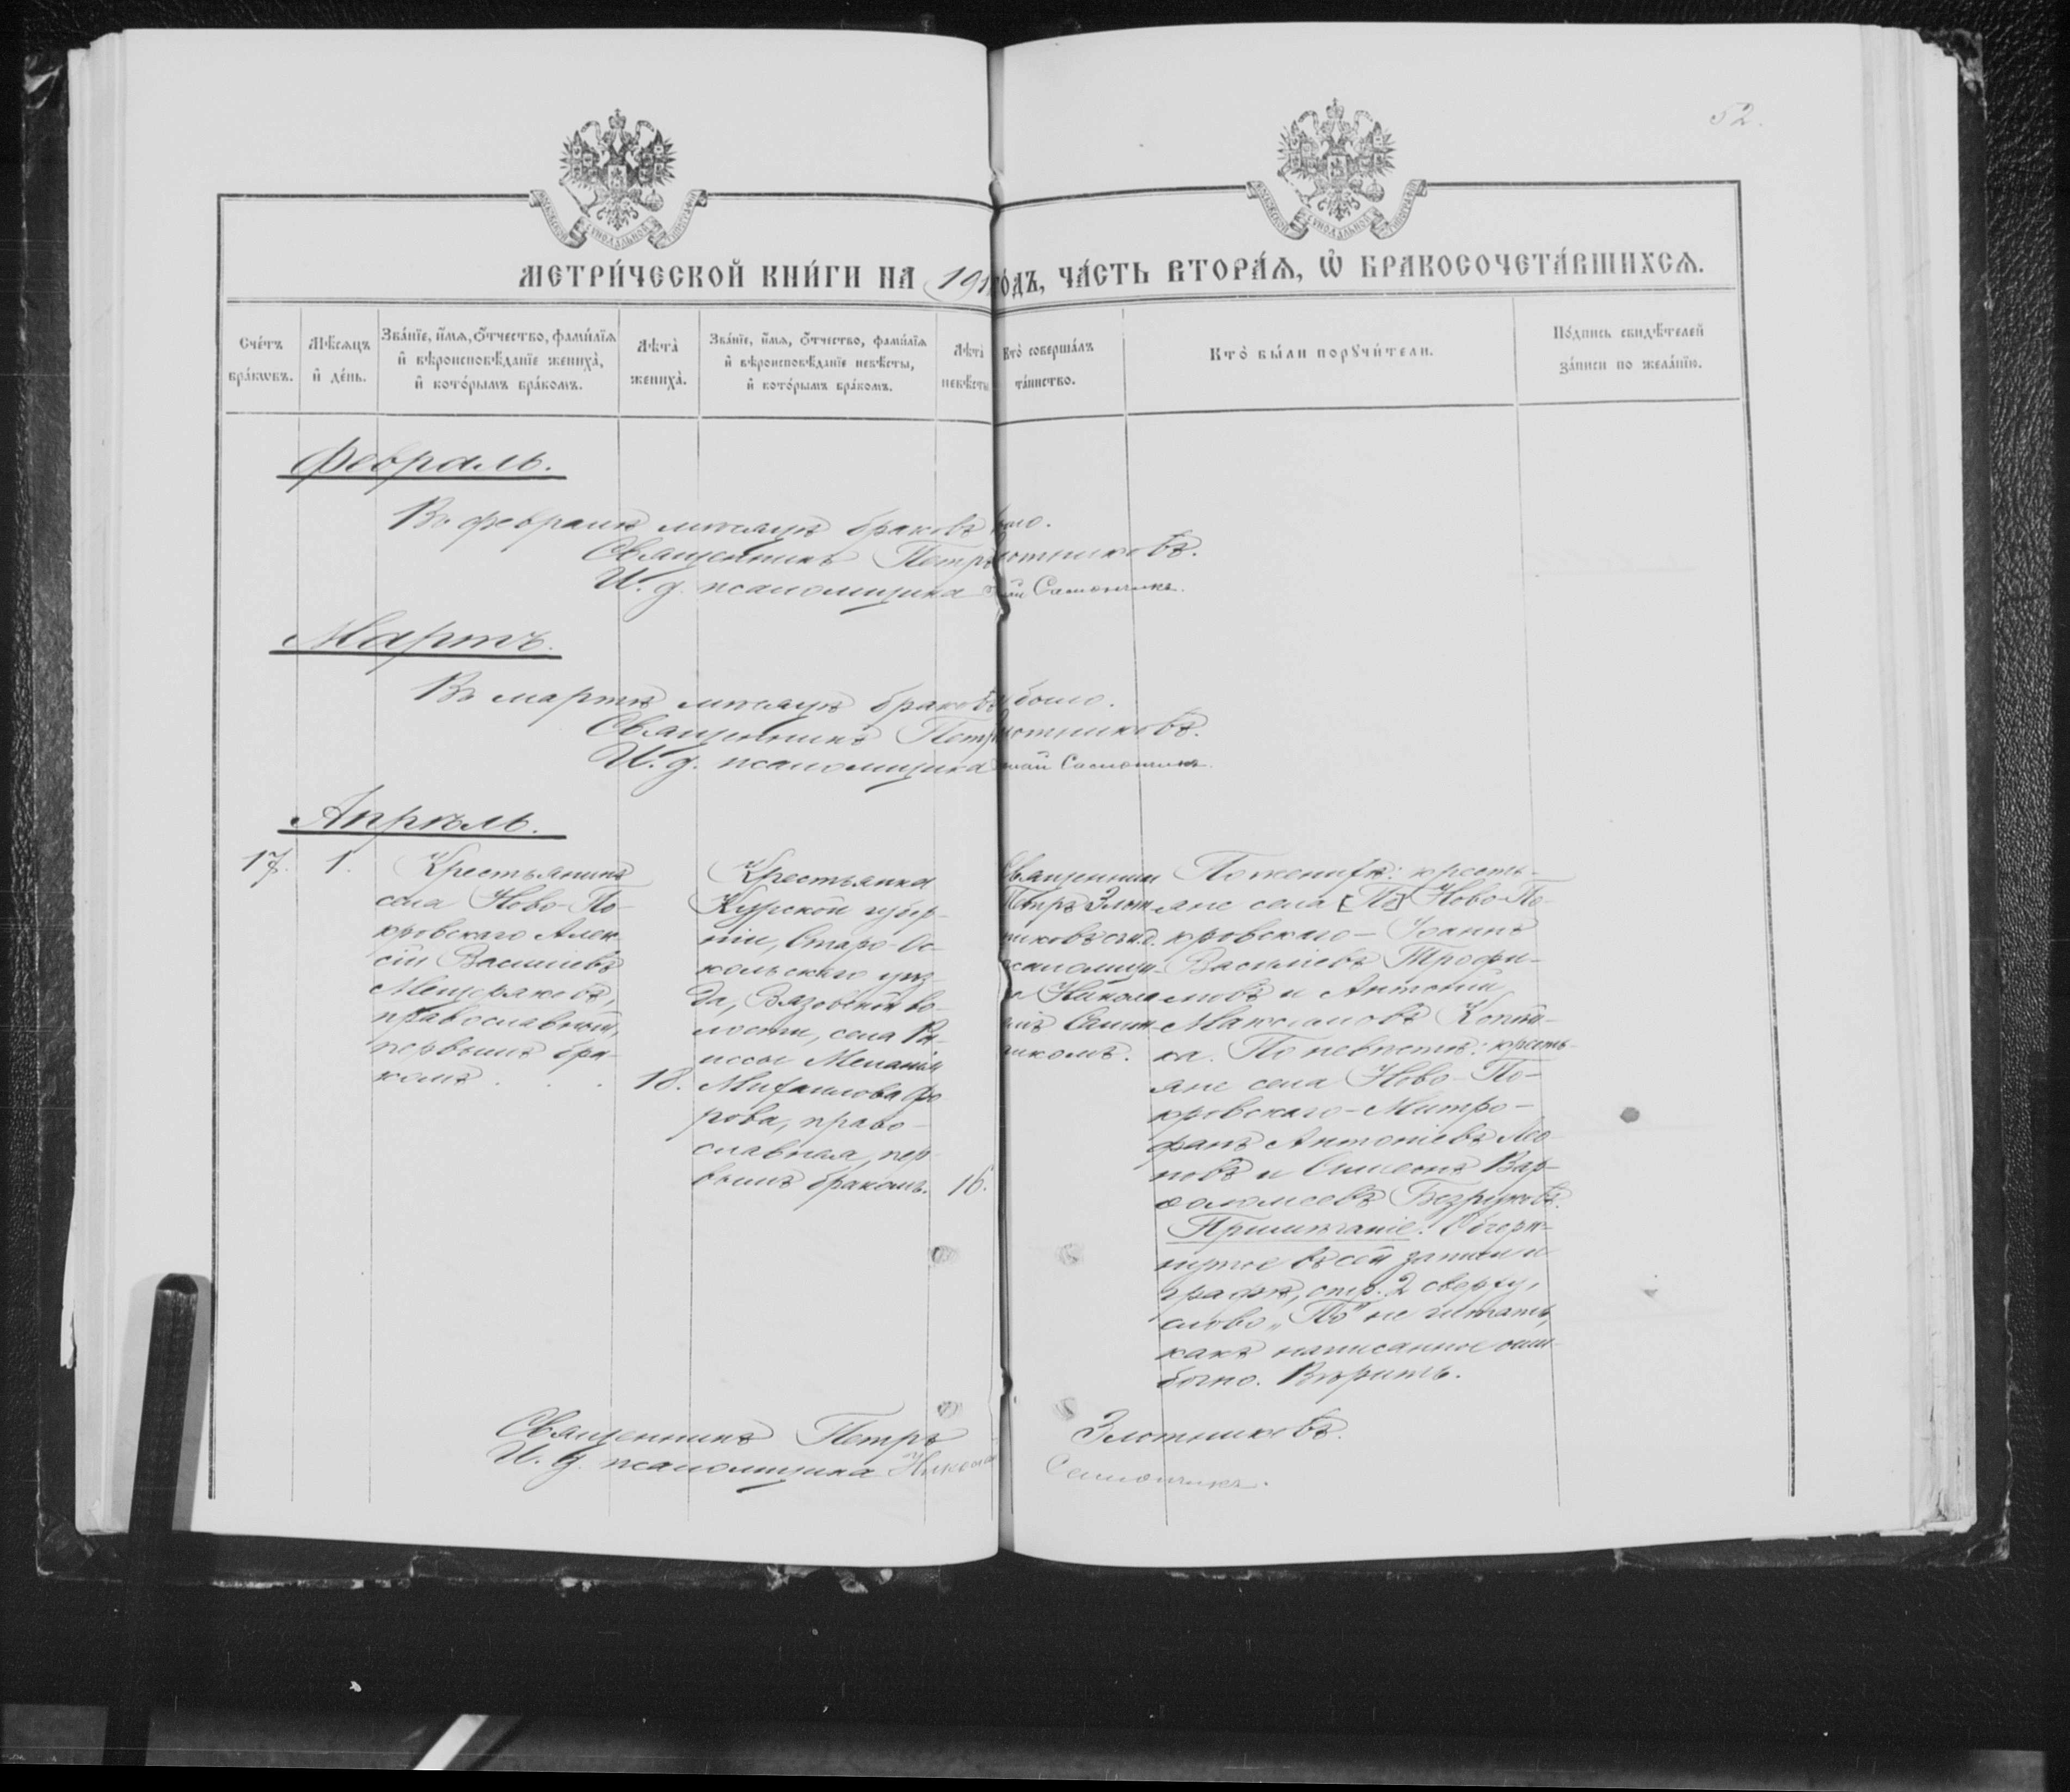 52.
МЕТРИ́ЧЕСКОЙ КНИ́ГИ НА 191 ГО́ДЪ, ЧА́СТЬ ВТОРА́Я, Ѡ БРАКОСОЧЕТА́ВШИХСЯ.
Сче́тъ бра́кѡвъ.
Мѣ́сяцъ и де́нь.
Зва́нїе, и́мя, ѻ́тчество, фами́лїя и вѣроисповѣ́данїе жениха̀, и кото́рымъ бра́комъ.
Лѣта̀ жениха̀.
Зва́нїе, и́мя, ѻ́тчество, фами́лїя и вѣроисповѣ́данїе невѣ́сты, и кото́рымъ бра́комъ.
Лѣта̀ невѣ́сты
Кто̀ соверша́лъ та́инство.
Кто̀ бы́ли порꙋчи́тели.
По́дпись свидѣ́телей за́писи по жела́нїю.
Февраль.
Въ февралѣ мѣсяцѣ браковъ было.
Священникъ Петръ отниковъ.
И. д. псаломщика Самойчикъ.
Мартъ.
Въ мартѣ мѣсяцѣ браковъ было.
Священникъ Петръ отниковъ.
И. д. псаломщика Самойчикъ.
Апрѣль.
17. 1.
Крестьянинъ
села Ново-По-
кровскаго Алек-
сій Васильевъ
Мещеряковъ,
православный,
первымъ бра-
комъ . . . 18.
Крестьянка
Курской губер-
ніи, Старо-Ос-
кольскаго уѣз-
да, Вязовской во-
лости, села
Меланія
Михаилова
рова, право-
славная, пер-
вымъ бракомъ. 16.
Священник
Петръ Злот-
никовъ съ и.д.
псаломщи-
Никола-
емъ Самой-
чикомъ.
По женихѣ: кресть-
яне села [По] Ново-По-
кровскаго - Іоаннъ
Васильевъ Трофи-
мовъ и Антоній
Максимовъ
ка. По невѣстѣ: кресть-
яне села Ново-По-
кровскаго - Митро-
фанъ Антоніевъ
новъ и Симеонъ Вар-
ѳоломеевъ Безруковъ.
Примѣчаніе. Очерк-
нутое въ сей записи и
графѣ, стр. 2 сверху,
слово „По" не читать,
какъ написанное оши-
бочно. Вѣрить.
Священникъ Петръ Злотниковъ.
И. д. псаломщика Николай Самойчикъ.